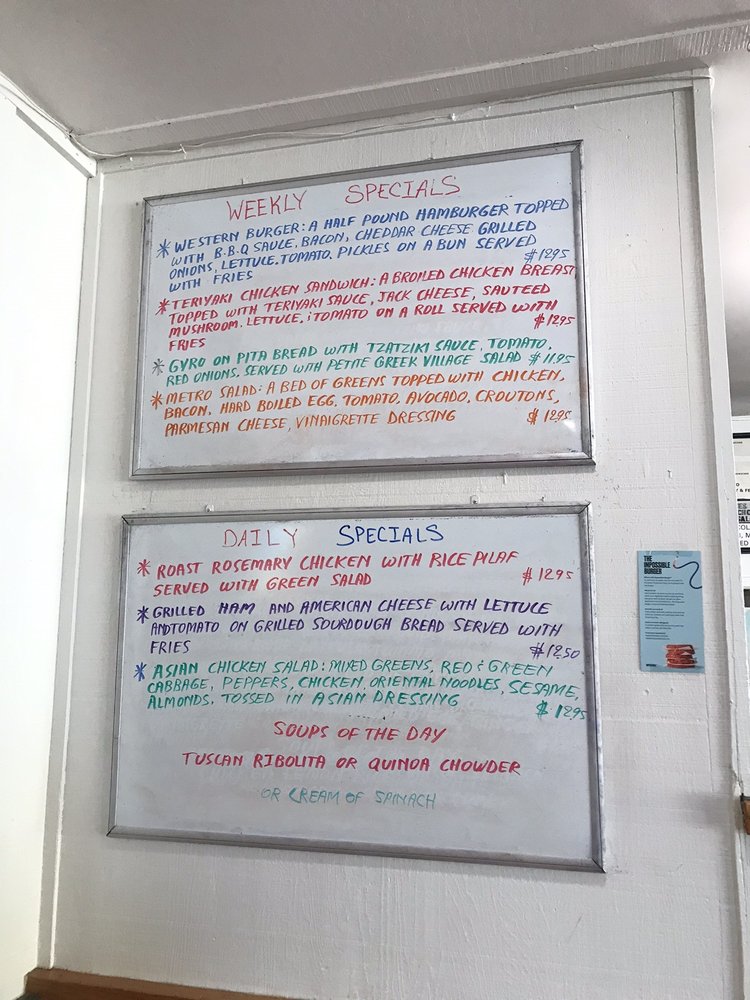 WEEKLY SPECIALS
* WESTERN BURGER: A HALF POUND HAMBURGER TOPPED
WITH B.B.Q SAUCE, BACON, CHEDDAR CHEESE GRILLED
ONIONS, LETTUCE, TOMATO, PICKLES ON A BUN SERVED
WITH FRIES $12.95
* TERIYAKI CHICKEN SANDWICH: A BROILED CHICKEN BREAST
TOPPED WITH TERIYAKI SAUCE, JACK CHEESE, SAUTEED
MUSHROOM, LETTUCE, & TOMATO ON A ROLL SERVED WITH
FRIES $12.95
* GYRO ON PITA BREAD WITH TZATZIKI SAUCE, TOMATO,
RED ONIONS, SERVED WITH PETITE GREEK VILLAGE SALAD $11.95
* METRO SALAD: A BED OF GREENS TOPPED WITH CHICKEN,
BACON, HARD BOILED EGG, TOMATO, AVOCADO, CROUTONS,
PARMESAN CHEESE, VINAIGRETTE DRESSING $12.95
DAILY SPECIALS
* ROAST ROSEMARY CHICKEN WITH RICE PILAF
SERVED WITH GREEN SALAD $12.95
* GRILLED HAM AND AMERICAN CHEESE WITH LETTUCE
ANDTOMATO ON GRILLED SOURDOUGH BREAD SERVED WITH
FRIES $12.50
* ASIAN CHICKEN SALAD: MIXED GREENS, RED & GREEN
CABBAGE, PEPPERS, CHICKEN, ORIENTAL NOODLES, SESAME,
ALMONDS, TOSSED IN ASIAN DRESSING $12.95
SOUPS OF THE DAY
TUSCAN RIBOLITA OR QUINOA CHOWDER
OR CREAM OF SPINACH
THE
IMPOSSIBLE
BURGER